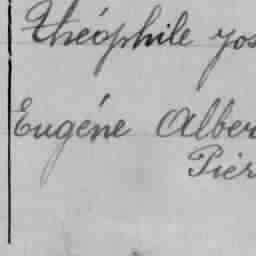 Théophile Jos
Eugéne Alber
Pier